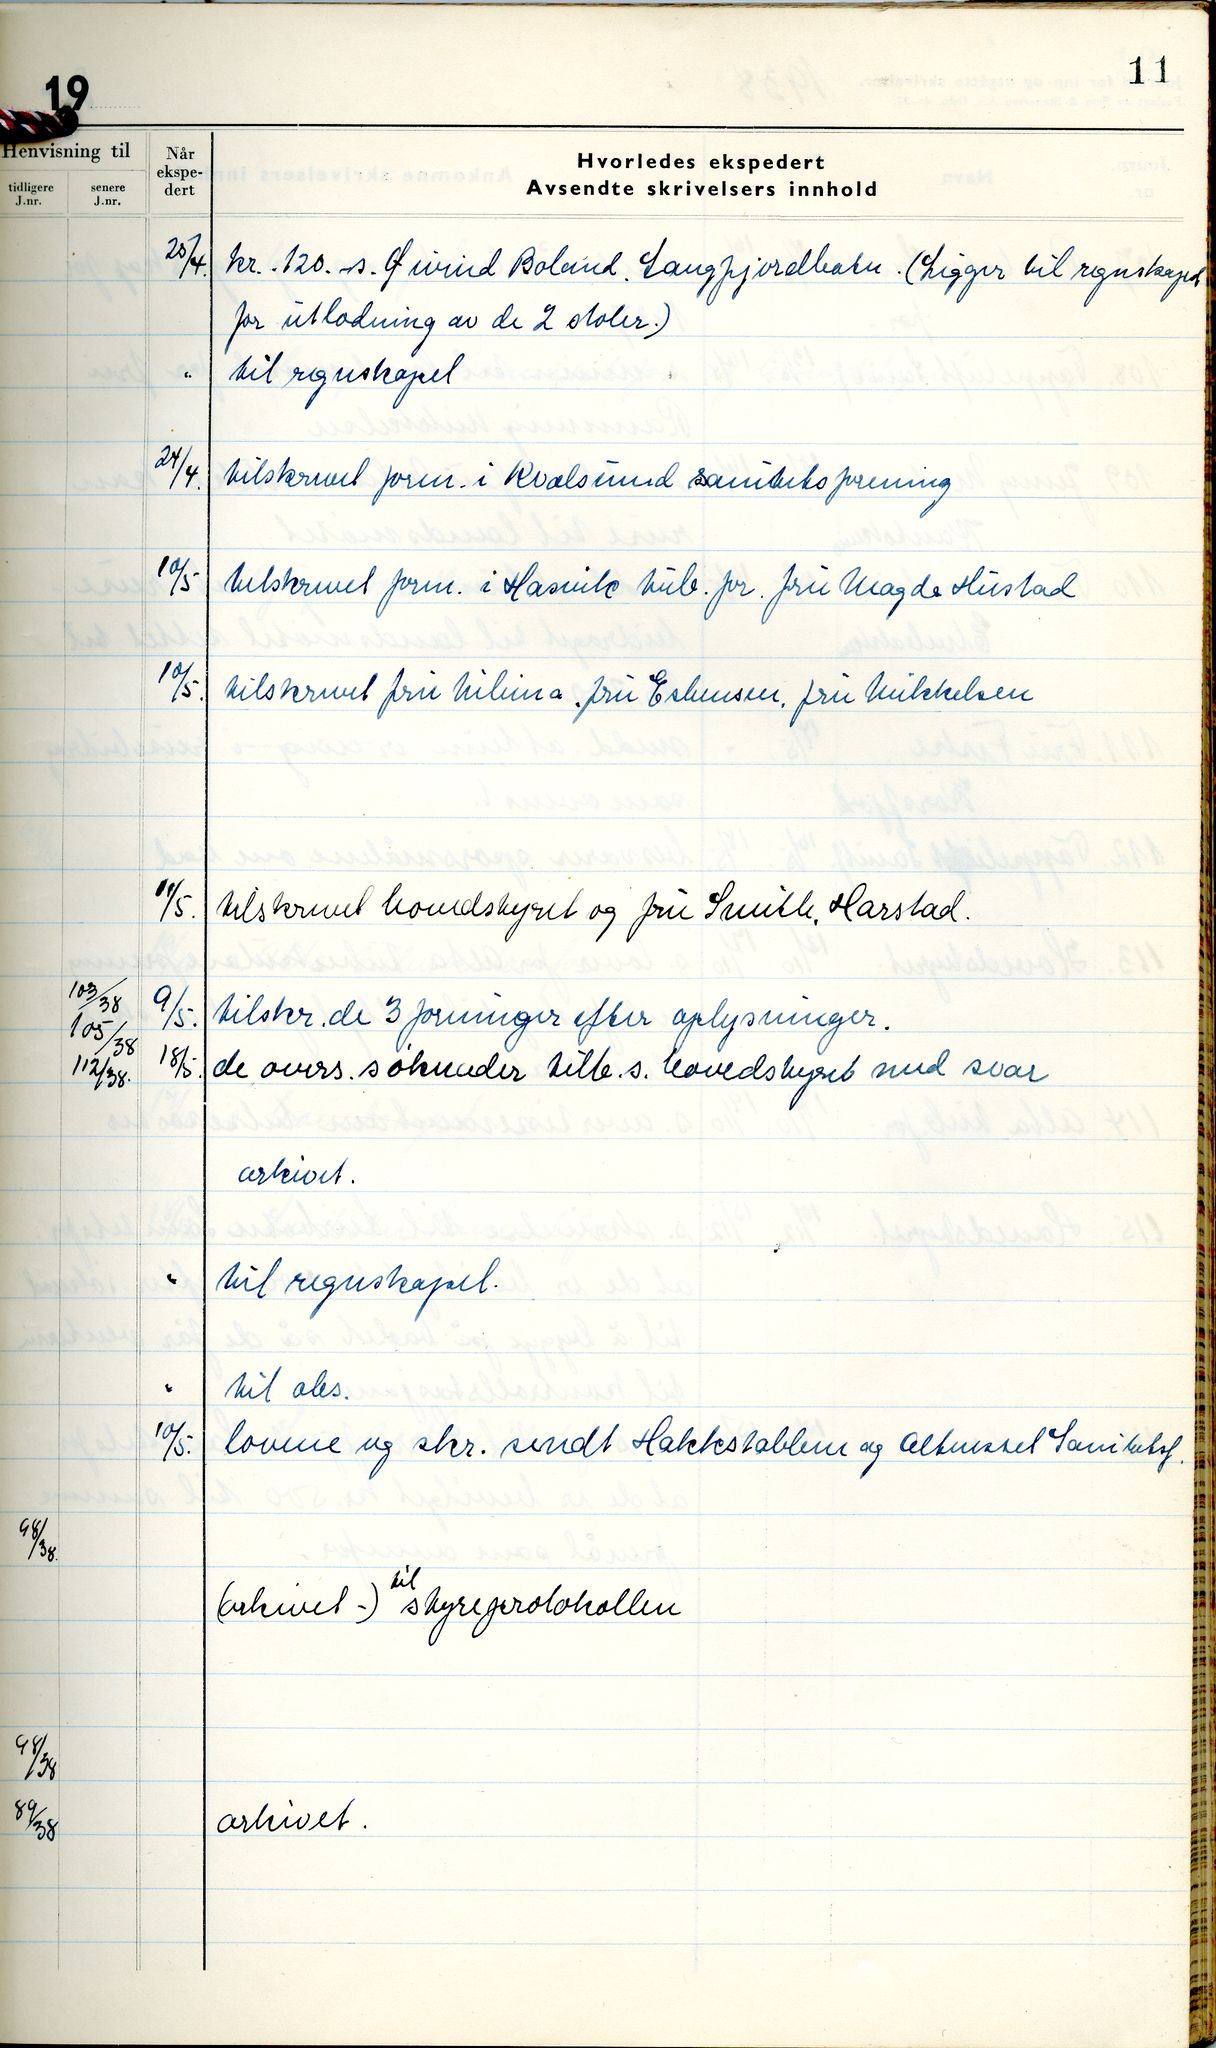 19
11
Henvisning til
tidligere J.nr.
senere J.nr.
Når ekspe-dert
Hvorledes ekspedert
Avsendte skrivelsers innhold
20/4. kr. 120. s. Øivind Boland. Langfjordbotn. (Ligger til regnskapet
for utlodning av de 2 stoler.)
" til regnskapet
24/4. tilskrevet form. i Kvalsund sanitetsforening
10/5 tilskrevet form. i Hasvik tub. for. fru Magda Hustad
10/5. tilskrevet fru fru Esbensen, fru Mikkelsen
11/5. tilskrevet hovedstyret og fru Smith, Harstad.
103/38 9/5. tilskr. de 3 foreninger efter oplysninger.
105/38
112/38. 18/5. de overs. søknader tilb. s. hovedstyret med svar
arkivet.
" til regnskapet.
" til
10/5. lovene og skr. sendt Hakkstabben og Altneset Sanitetsf.
98/38.
(arkivet -) til styreprotokollen
98/38
89/38 arkivet.